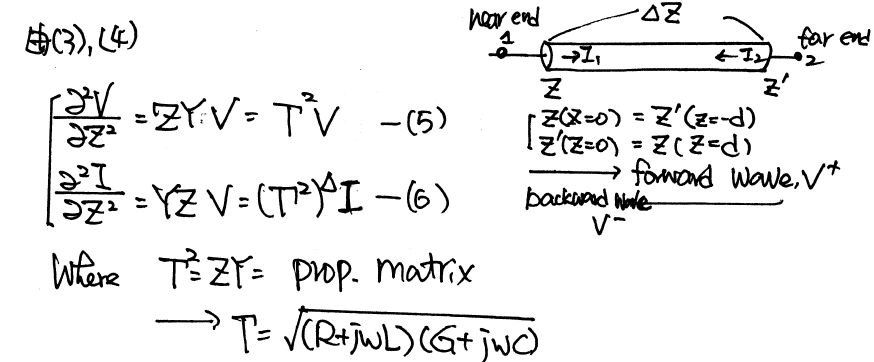 由(3),(4)
∂²V/∂Z² = ZYV = T²V —(5)
∂²I/∂Z² = YZ V = (T²)^Δ I —(6)
Where T² = ZY = prop. matrix
→ T = √(R+jwL)(G+jwC)
near end ΔZ far end
1 →I₁ ←I₂ 2
Z Z'
Z(Z=0) = Z'(Z=-d)
Z'(Z=0) = Z(Z=d)
→ forward wave, V⁺
backward wave
V⁻